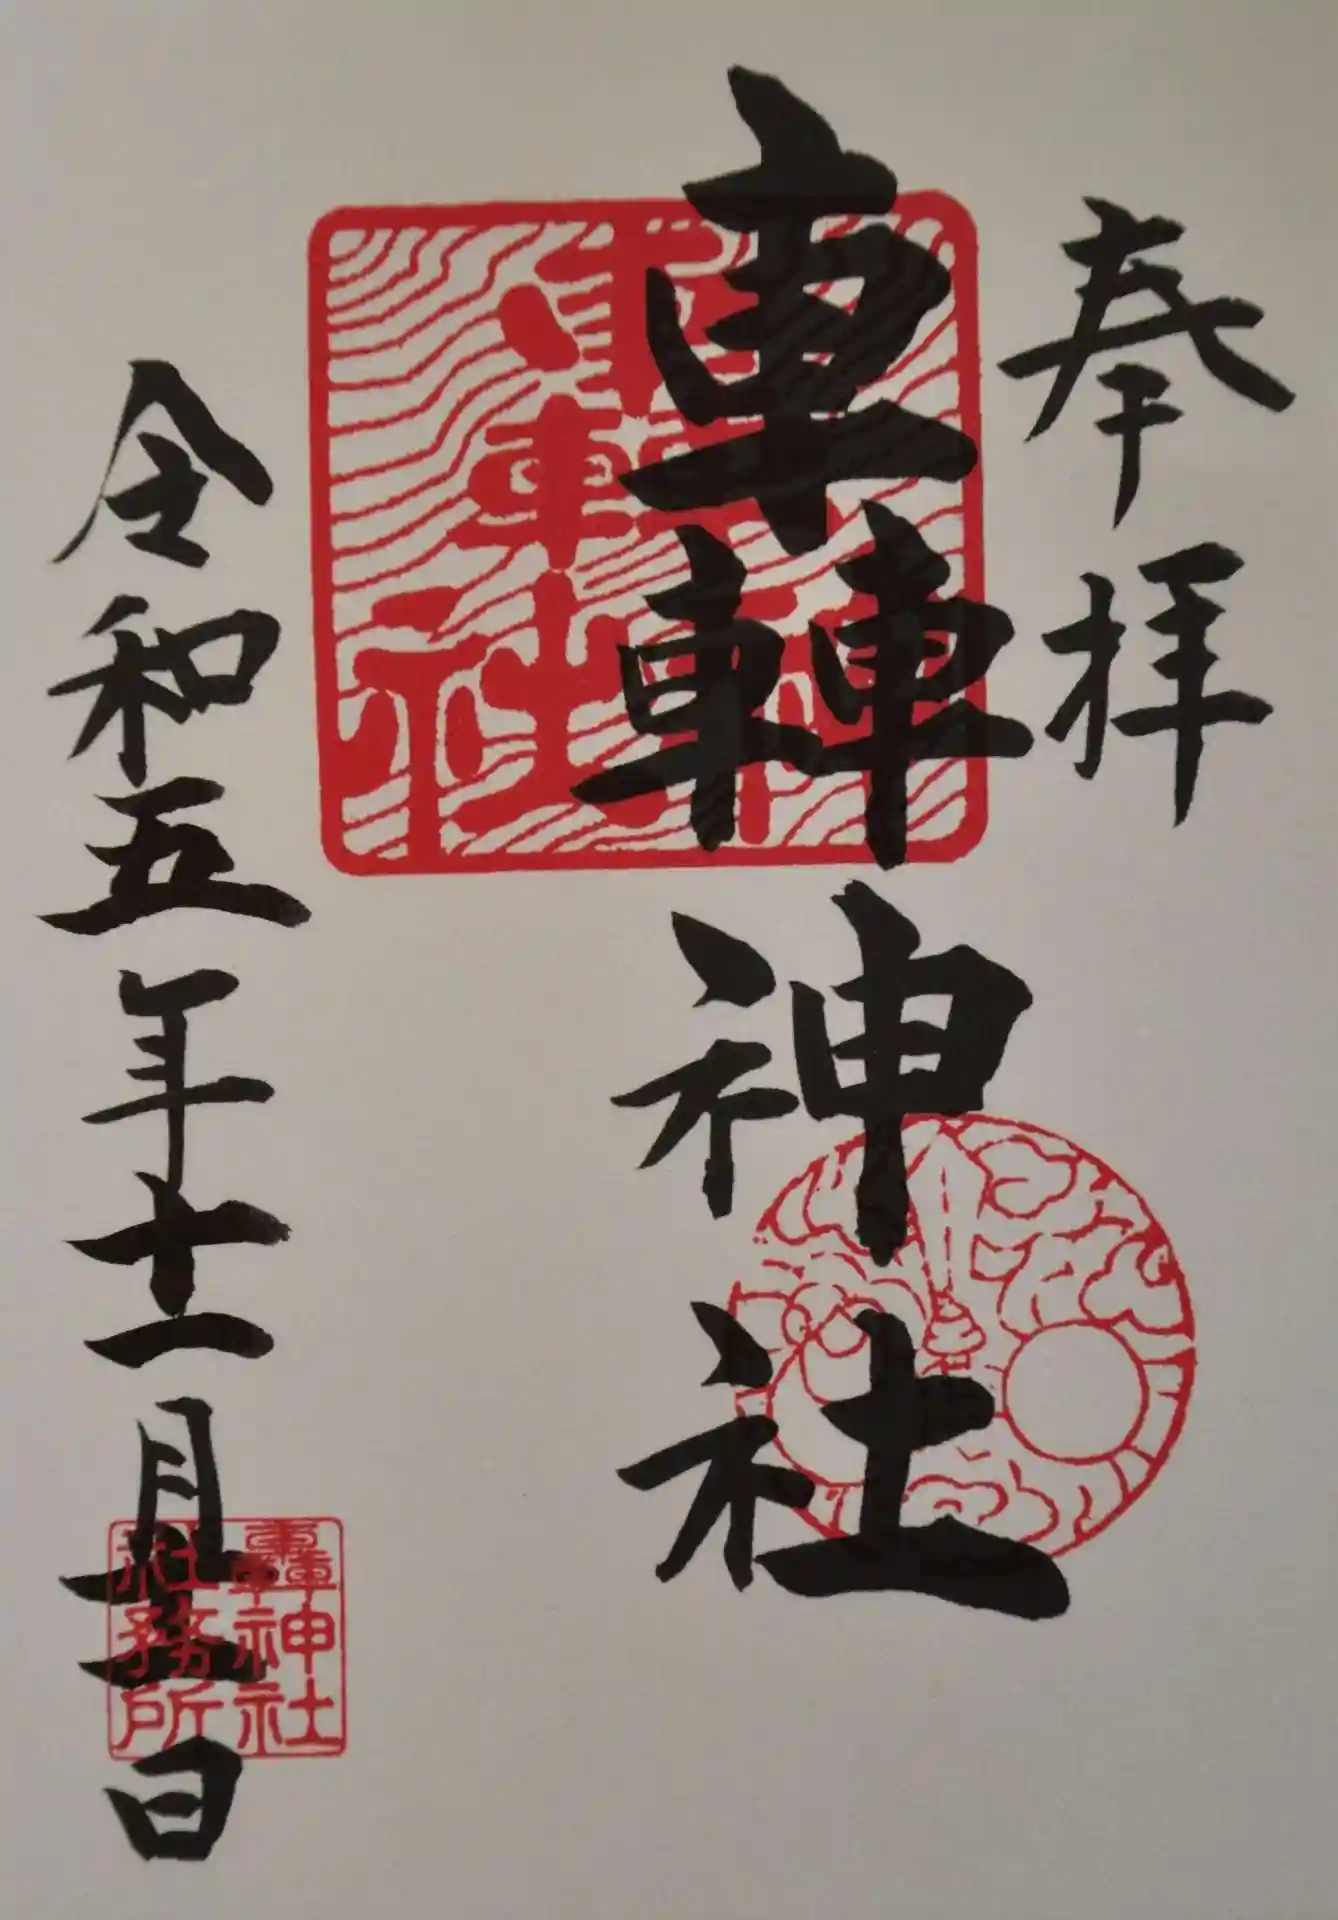 奉拝
轟神社
令和五年十一月
日
轟神社
轟神社
社務所